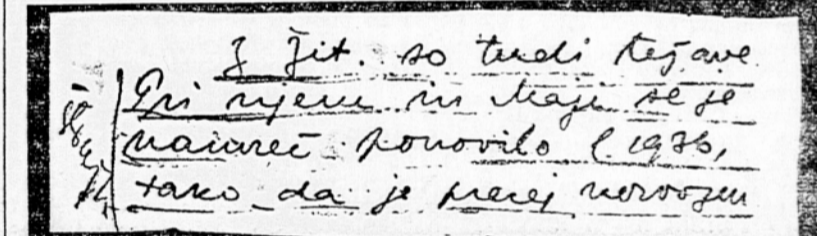 Z Žit. so tudi težave
Pri njem in Maje se je
namreč ponovilo (1976,
tako da je precej nervozen